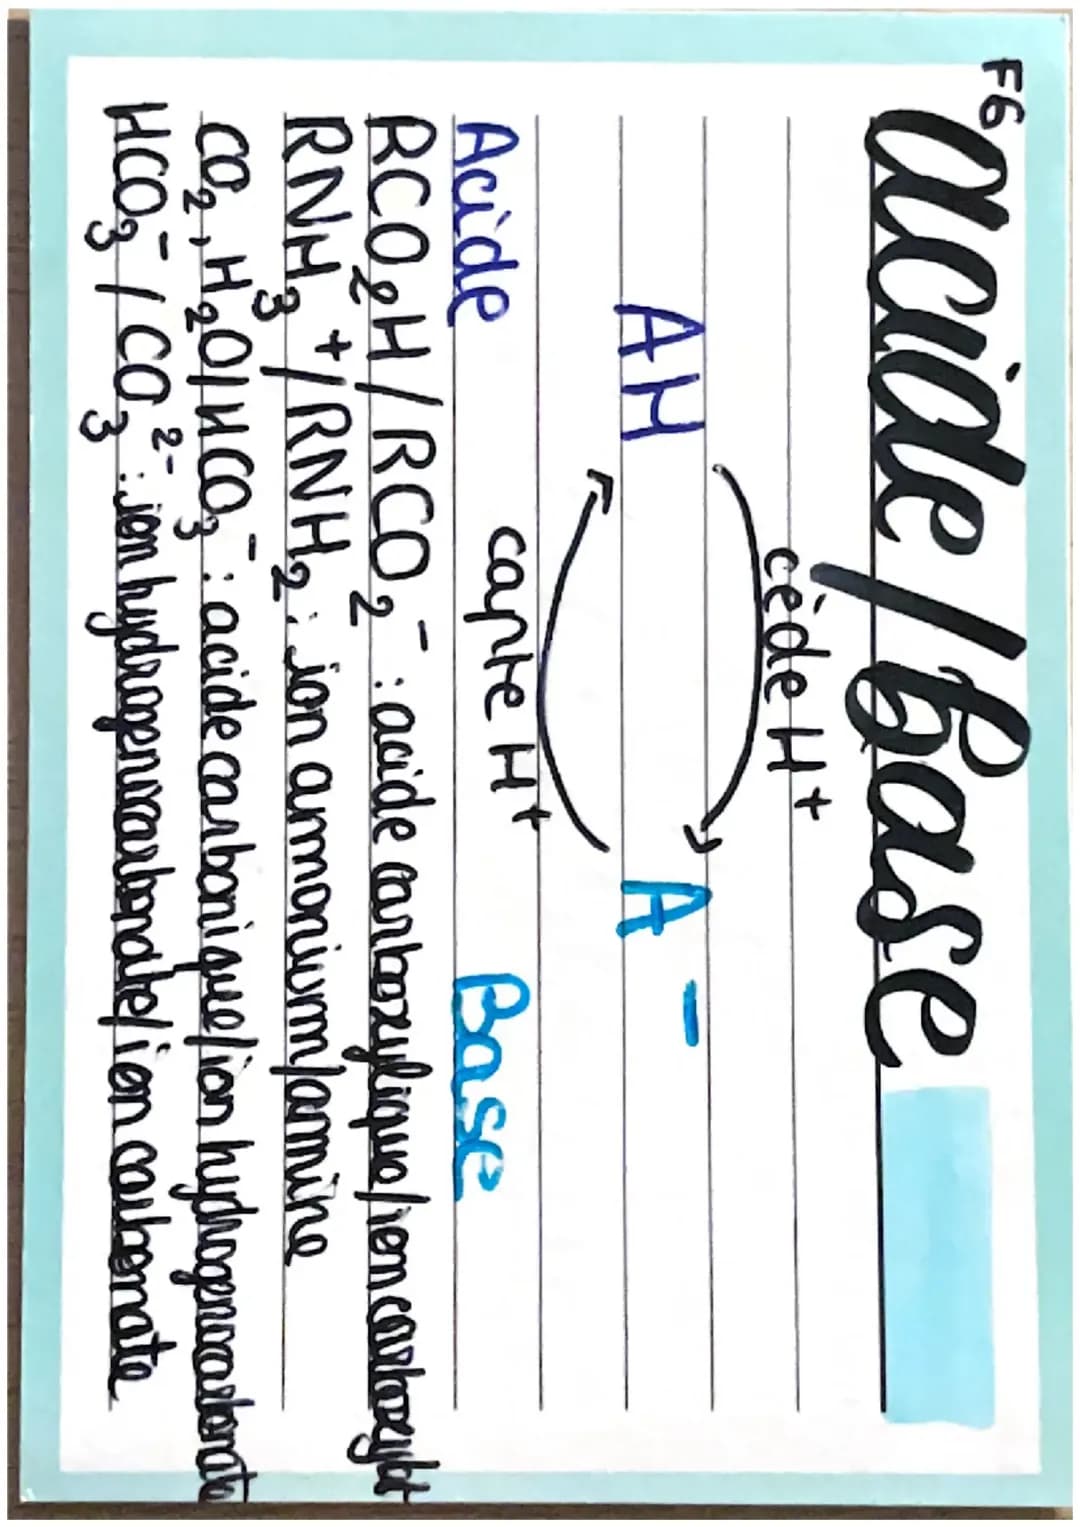 F6
acide/Base
cède H+
AH A-
capte H+
Acide Base
RCO2H/RCO2- : acide carboxylique/ion carboxylat
RNH3+/RNH2 : ion ammonium/amine
CO2, H2O/HCO3- : acide carbonique/ion hydrogénocarbonate
HCO3-/CO3 2- : ion hydrogénocarbonate/ion carbonate